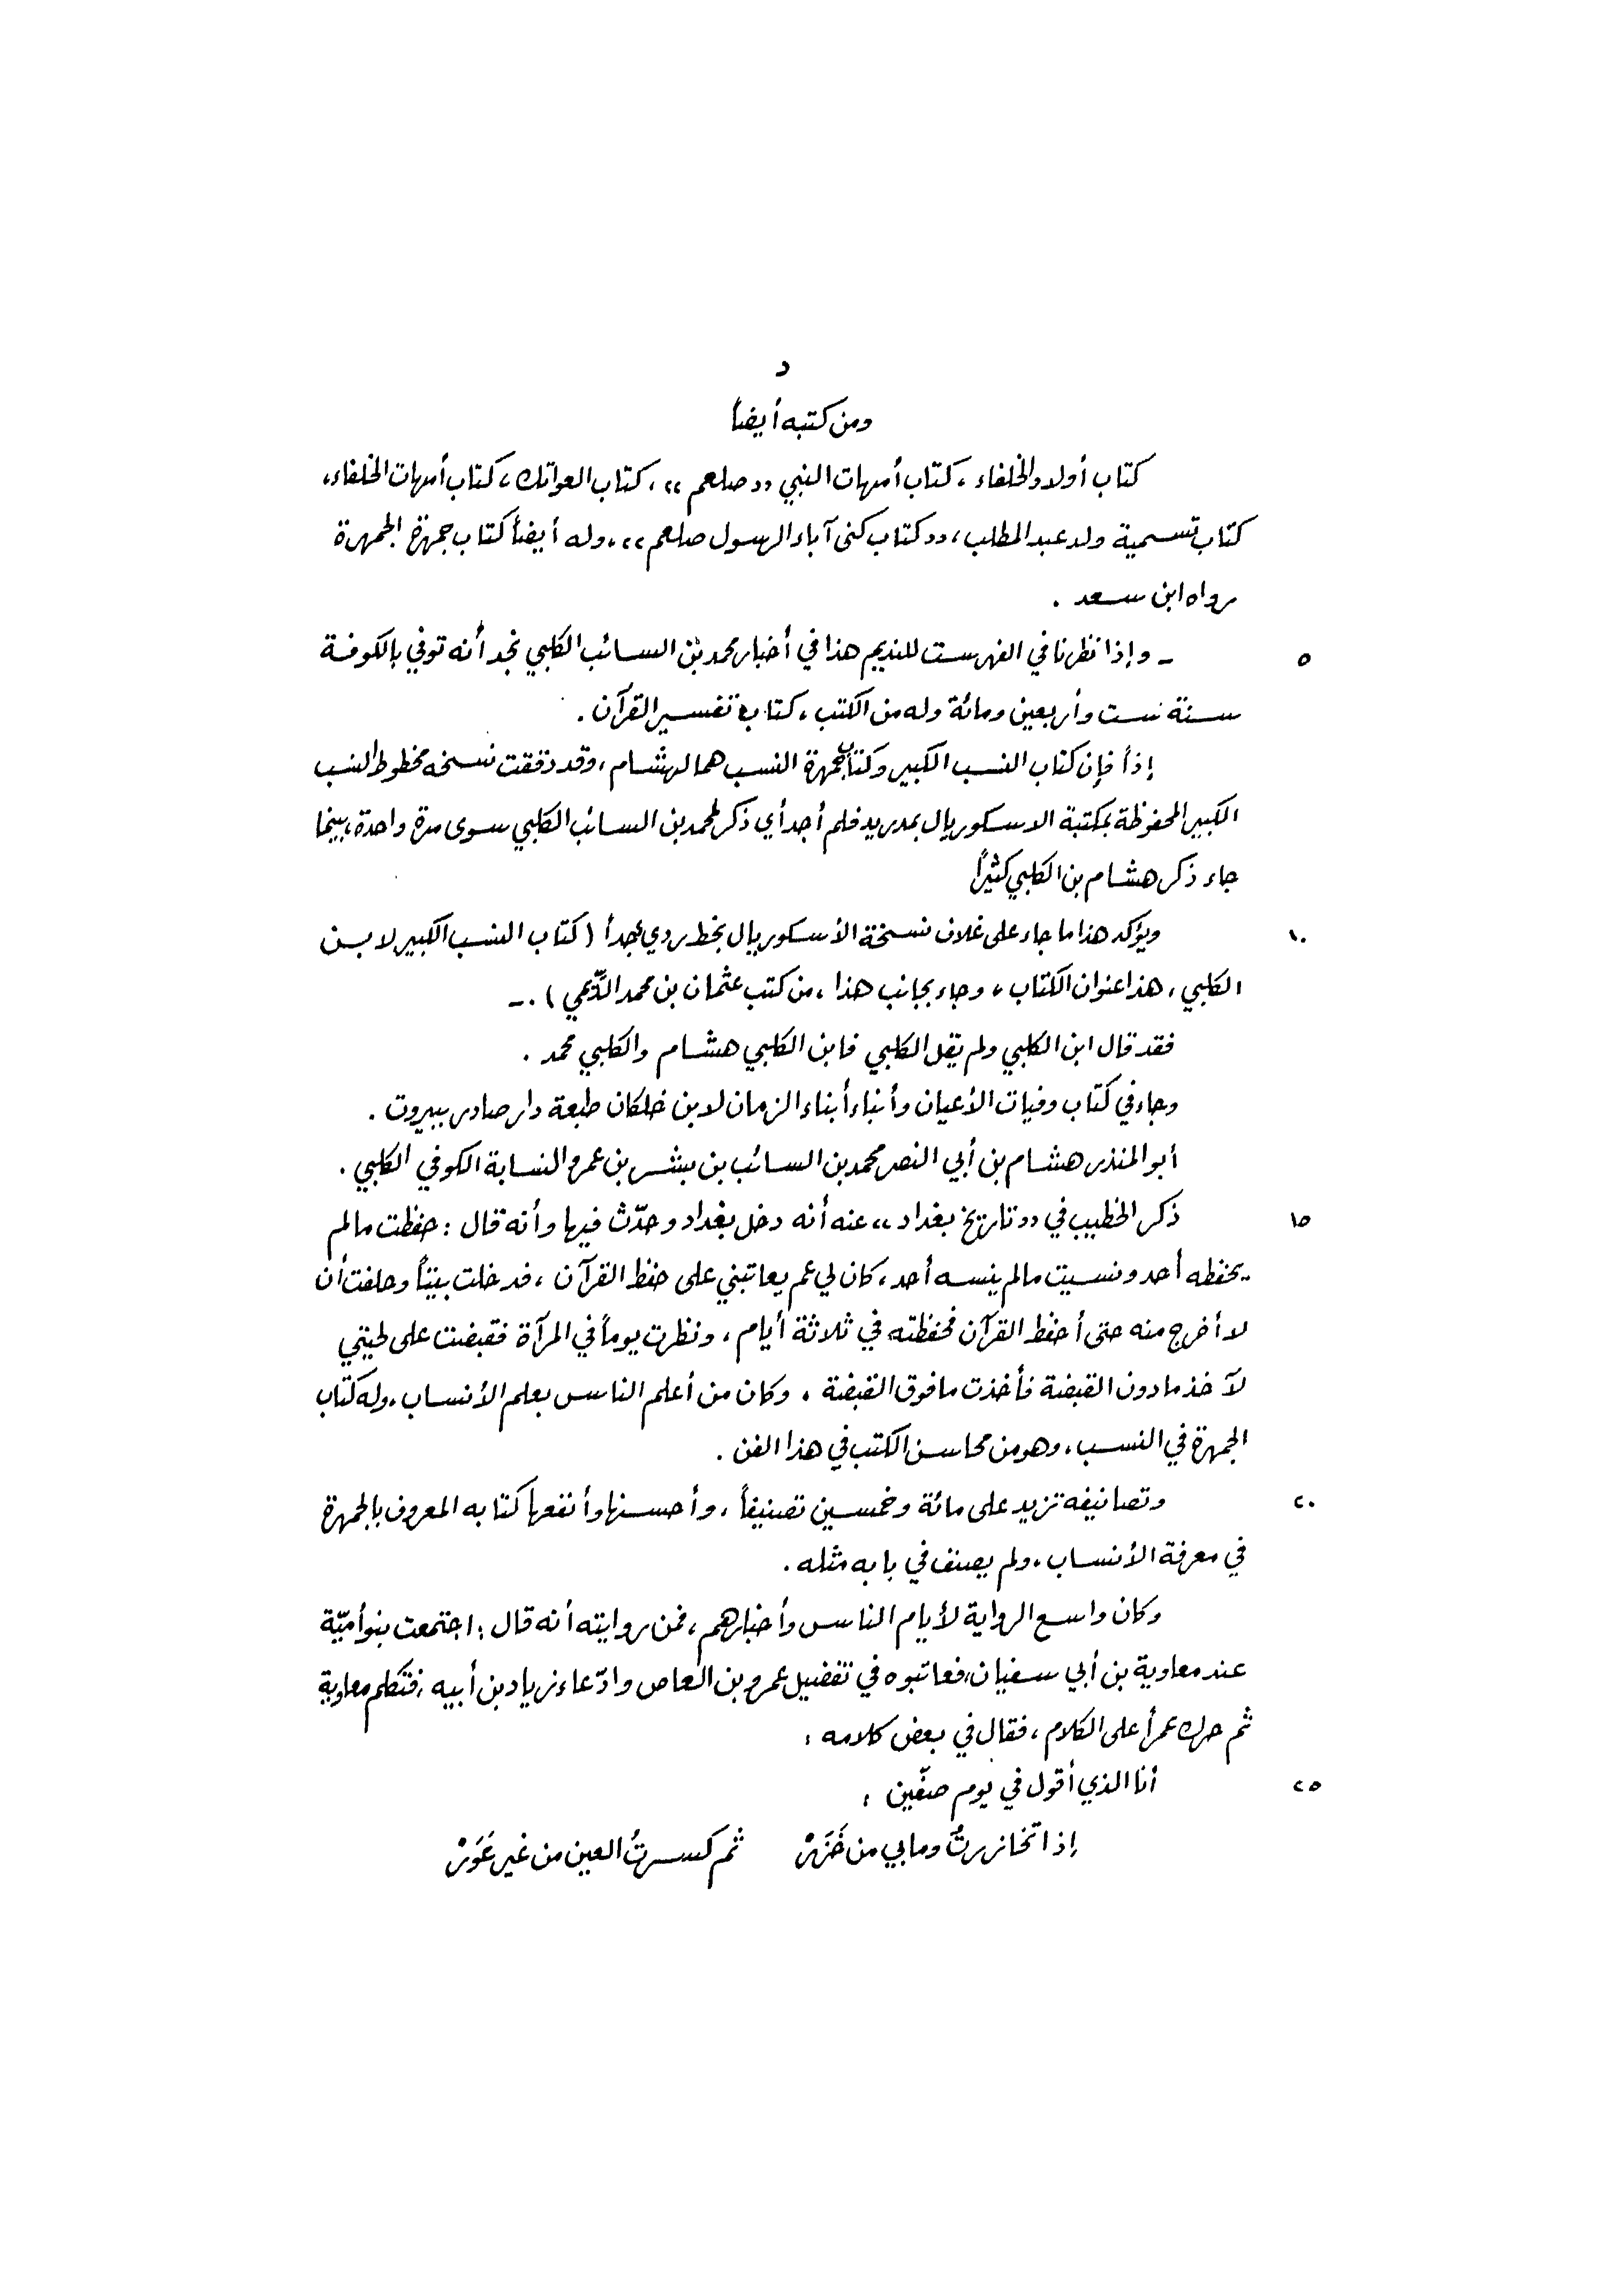 د
ومن كتبه أيضاً
كتاب أولاد الخلفاء ، كتاب أمهات النبي «صلعم» ، كتاب العواتك ، كتاب أمهات الخلفاء ،
كتاب تسمية ولد عبد المطلب ، «كتاب كنى آباء الرسول صلعم» ، وله أيضاً كتاب جمهرة الجمهرة
رواه ابن سعد .
٥ ـ وإذا نظرنا في الفهرست للنديم هذا في أخبار محمد بن السائب الكلبي نجد أنه توفي بالكوفة
سنة ست وأربعين ومائة وله من الكتب ، كتاب تفسير القرآن .
إذاً فإن كتاب النسب الكبير وكتاب جمهرة النسب هما لهشام ، وقد دققت نسخه مخطوط النسب
الكبير المحفوظة بمكتبة الاسكوريال بمدريد فلم أجد أي ذكر لمحمد بن السائب الكلبي سوى مرة واحدة ، بينما
جاء ذكر هشام بن الكلبي كثيراً
١٠ ويؤكد هذا ما جاء على غلاف نسخة الأسكوريال بخط ردي جداً ( كتاب النسب الكبير لابن
الكلبي ، هذا عنوان الكتاب ، وجاء بجانب هذا ، من كتب عثمان بن محمد الدّيمي ) . ـ
فقد قال ابن الكلبي ولم يقل الكلبي فابن الكلبي هشام والكلبي محمد .
وجاء في كتاب وفيات الأعيان وأنباء أبناء الزمان لابن خلكان طبعة دار صادر ببيروت .
أبو المنذر هشام بن أبي النصر محمد بن السائب بن بشر بن عمرو النسابة الكوفي الكلبي .
١٥ ذكر الخطيب في «تاريخ بغداد» عنه أنه دخل بغداد وحدّث فيها وأنه قال : حفظت مالم
يحفظه أحد ونسيت مالم ينسه أحد ، كان لي عم يعاتبني على حفظ القرآن ، فدخلت بيتاً وحلفت أن
لا أخرج منه حتى أحفظ القرآن فحفظته في ثلاثة أيام ، ونظرت يوماً في المرآة فقبضت على لحيتي
لآخذ ما دون القبضة فأخذت ما فوق القبضة . وكان من أعلم الناس بعلم الأنساب ، وله كتاب
الجمهرة في النسب ، وهو من محاسن الكتب في هذا الفن .
٢٠ وتصانيفه تزيد على مائة وخمسين تصنيفاً ، وأحسنها وأنفعها كتابه المعروف بالجمهرة
في معرفة الأنساب ، ولم يصنف في بابه مثله .
وكان واسع الرواية لأيام الناس وأخبارهم ، فمن روايته أنه قال : اجتمعت بنو أميّة
عند معاوية بن أبي سفيان ، فعاتبوه في تفضيل عمرو بن العاص وادّعاء زياد بن أبيه ، فتكلم معاوية
ثم حرك عمراً على الكلام ، فقال في بعض كلامه :
٢٥ أنا الذي أقول في يوم صفّين :
إذا تخازرتُ وما بي من خَزَرْ ثم كسرتُ العين من غير عَوَرْ